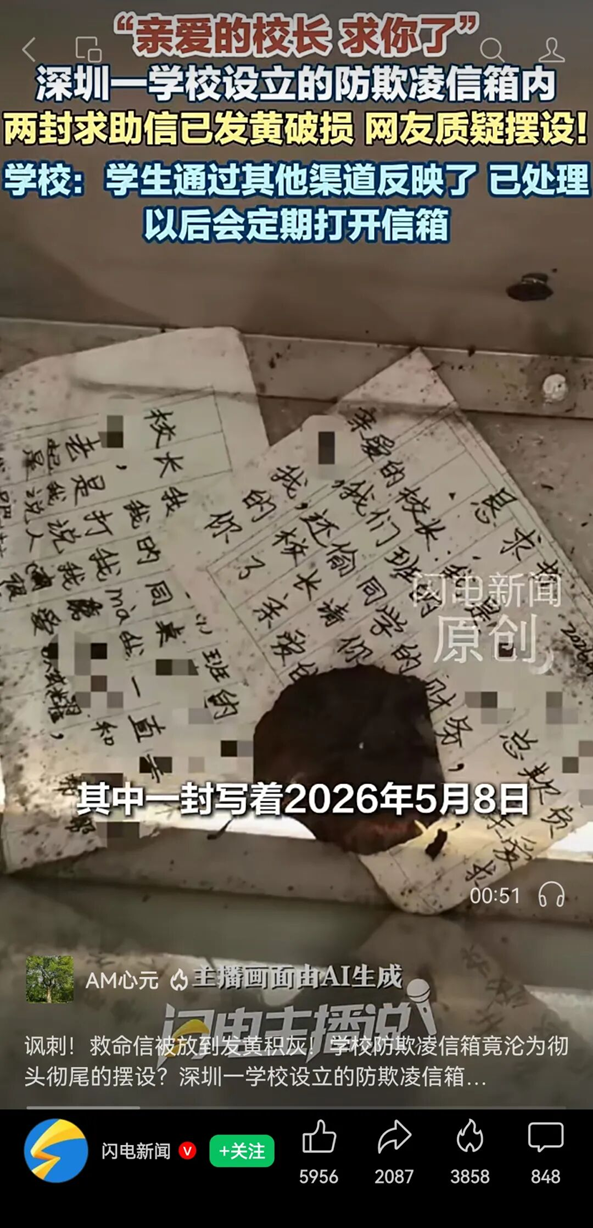 “亲爱的校长 求你了”
深圳一学校设立的防欺凌信箱内
两封求助信已发黄破损 网友质疑摆设!
学校：学生通过其他渠道反映了 已处理
以后会定期打开信箱
校长我
亲爱的校长
恳求
我们班的
我,还偷同学的财务,
的校长请你
你了亲爱
班的
我的同桌
一直
去,是打我
说我
总欺负
闪电新闻
原创
其中一封写着2026年5月8日
00:51
AM心元
主播画面由AI生成
闪电主播说
讽刺！救命信被放到发黄积灰！学校防欺凌信箱竟沦为彻
头彻尾的摆设？深圳一学校设立的防欺凌信箱...
闪电新闻
+关注
5956
2087
3858
848